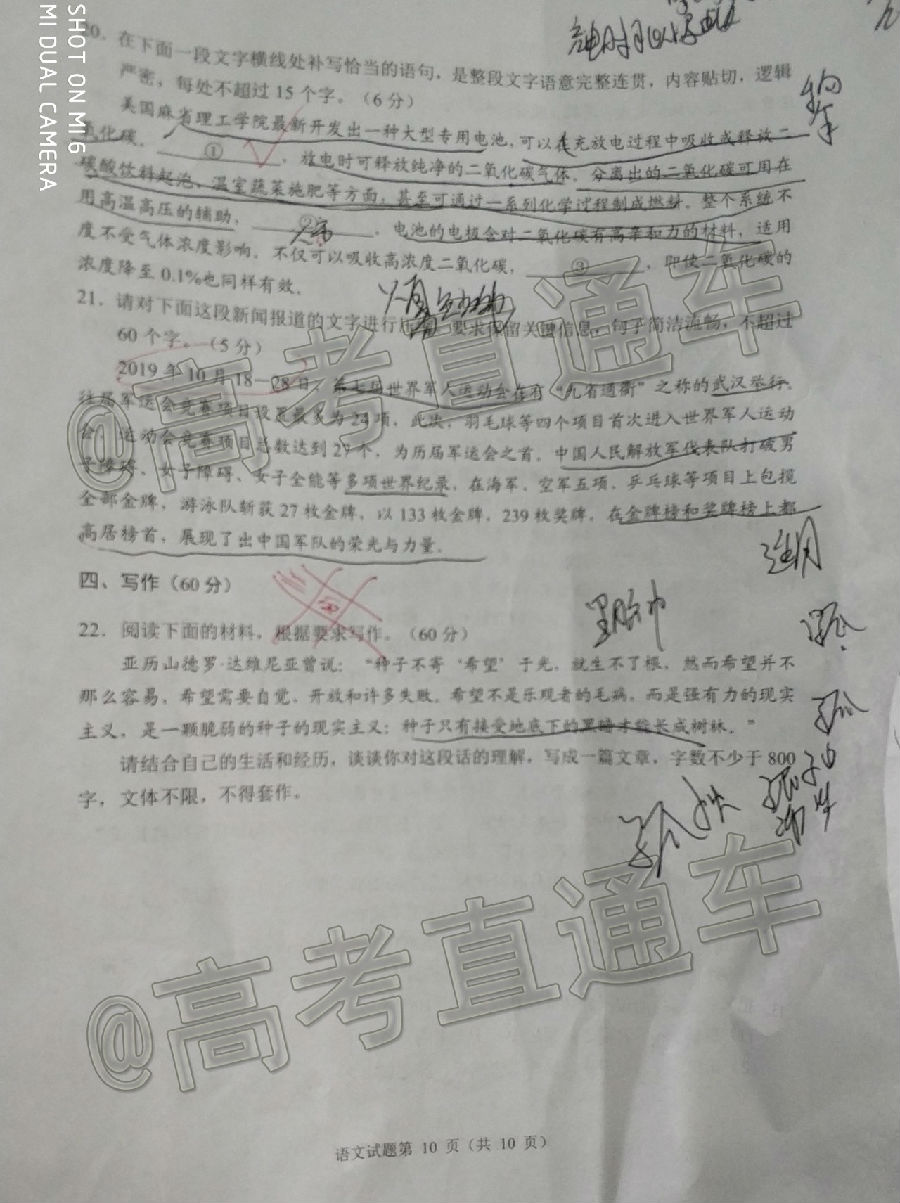 SHOT ON MI 6
MI DUAL CAMERA
20．在下面一段文字横线处补写恰当的语句，是整段文字语意完整连贯，内容贴切，逻辑
严密，每处不超过 15 个字。（6 分）
美国麻省理工学院最新开发出一种大型专用电池，可以在充放电过程中吸收或释放二
氧化碳。 ① ，放电时可释放纯净的二氧化碳气体。分离出的二氧化碳可用在
碳酸饮料起泡，温室蔬菜施肥等方面，甚至可通过一系列化学过程制成燃料。整个系统不
用高温高压的辅助， ② ，电池的电极含对二氧化碳有高亲和力的材料，适用
度不受气体浓度影响，不仅可以吸收高浓度二氧化碳， ③ ，即使二氧化碳的
浓度降至 0.1%也同样有效。
21．请对下面这段新闻报道的文字进行压缩，要求保留关键信息，句子简洁流畅，不超过
60 个字。（5 分）
2019 年 10 月 18—28 日，第七届世界军人运动会在有“九省通衢”之称的武汉举行。
往届军运会竞赛项目设置最多为 24 项，此次，羽毛球等四个项目首次进入世界军人运动
会，运动会竞赛项目总数达到 27 个，为历届军运会之首。中国人民解放军代表队打破男
子障碍、女子障碍、女子全能等多项世界纪录，在海军、空军五项、乒乓球等项目上包揽
全部金牌，游泳队斩获 27 枚金牌，以 133 枚金牌，239 枚奖牌，在金牌榜和奖牌榜上都
高居榜首，展现了出中国军队的荣光与力量。
四、写作（60 分）
22．阅读下面的材料，根据要求写作。（60 分）
亚历山德罗·达维尼亚曾说：“种子不寄‘希望’于光，就生不了根，然而希望并不
那么容易，希望需要自觉、开放和许多失败。希望不是乐观者的毛病，而是强有力的现实
主义，是一颗脆弱的种子的现实主义：种子只有接受地底下的黑暗才能长成树林。”
请结合自己的生活和经历，谈谈你对这段话的理解，写成一篇文章，字数不少于 800
字，文体不限，不得套作。
@高考直通车
@高考直通车
语文试题第 10 页（共 10 页）